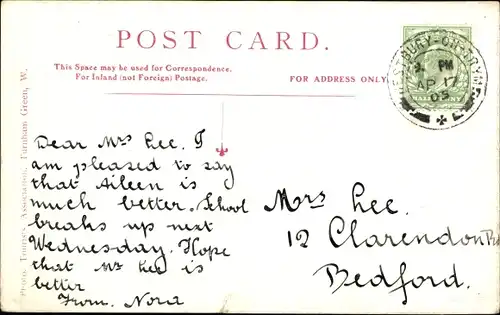 POST CARD.
This Space may be used for Correspondence.
For Inland (not Foreign) Postage.
FOR ADDRESS ONLY
WESTBURY-ON-TRYM
PM
AP 17
05
Dear Mrs Lee. I
am pleased to say
that Aileen is
much better. School
breaks up next
Wednesday. Hope
that Mr Lee is
better
From. Nora
Mrs Lee.
12 Clarendon Rd
Bedford.
Photo. Tourists Association, Turnham Green, W.